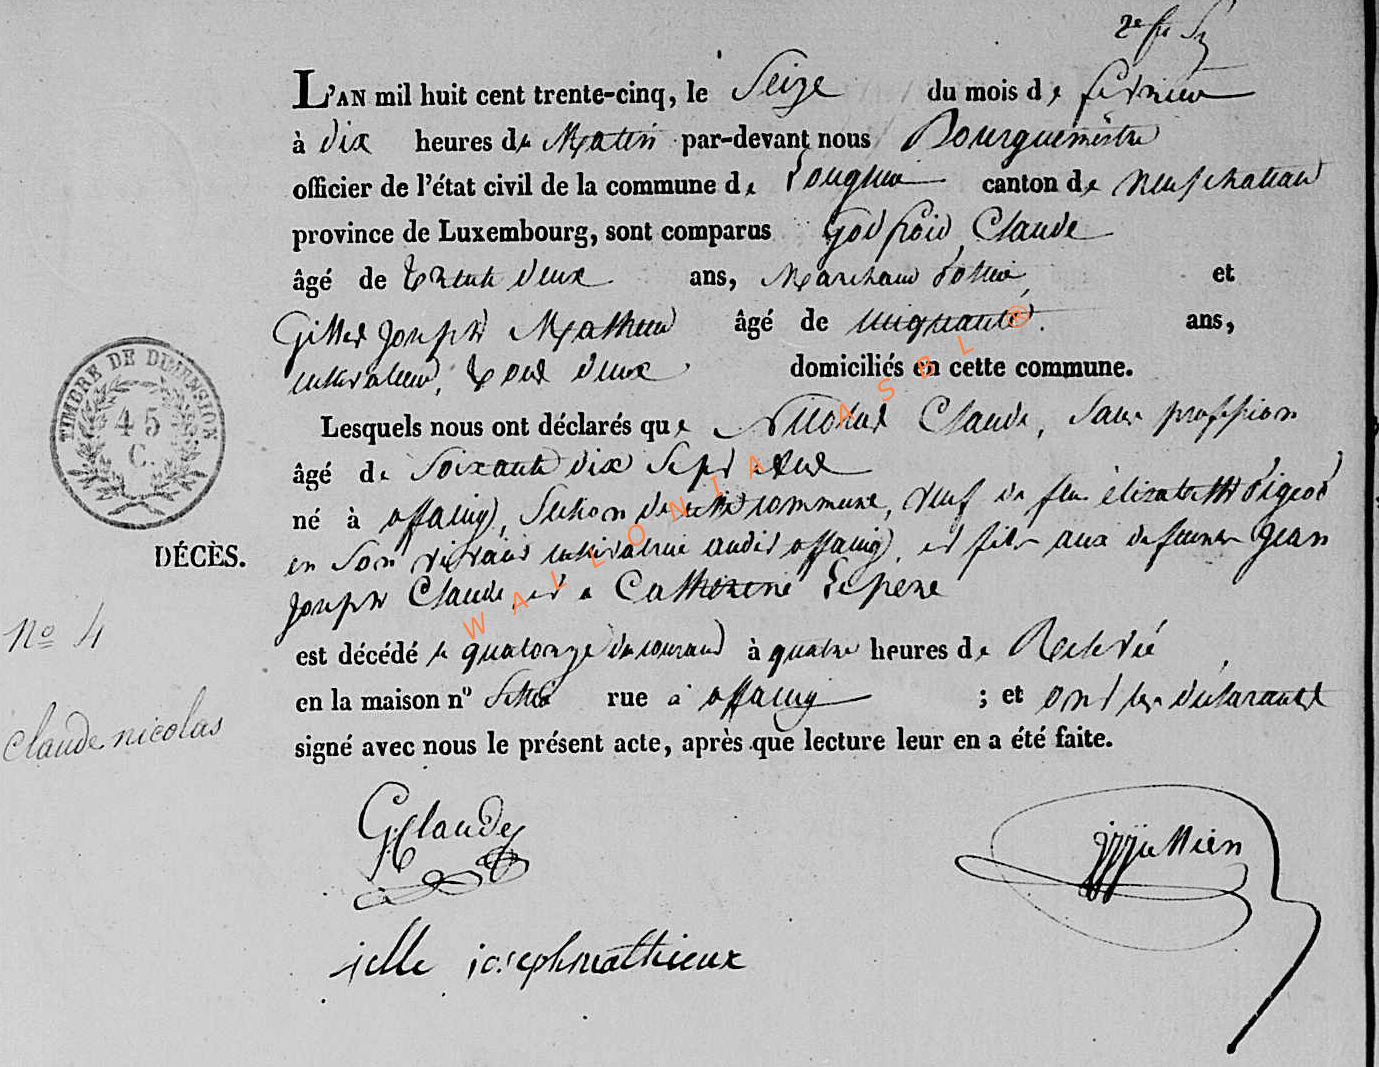 L'AN mil huit cent trente-cinq, le Seize du mois de fevrier
à dix heures du Matin par-devant nous Bourguemestre
officier de l'état civil de la commune de Louglier canton de Neufchateau
province de Luxembourg, sont comparus Godfroid Claude
âgé de trente deux ans, Marchand et
Gilles Joseph Mathieu âgé de cinquante ans,
cultivateur, tous deux domiciliés en cette commune.
Lesquels nous ont déclarés que Nicolas Claude, sans profession
âgé de Soixante dix Sept ans
né à offaing, Section de cette commune, veuf de feue élizabeth Pigeon
en son vivant cultivatrice audit offaing, et fils aux defunts Jean
Joseph Claude, et à Catherine Lepene
est décédé le quatorze du courant à quatre heures de Relevée
en la maison n° Sette rue à offaing ; et ont les déclarants
signé avec nous le présent acte, après que lecture leur en a été faite.
TIMBRE DE DIMENSION
45
C.
DÉCÈS.
N° 4
Claude nicolas
GClaude
jjjullien
jille josephmathieux
WALLONIA ASBL ®